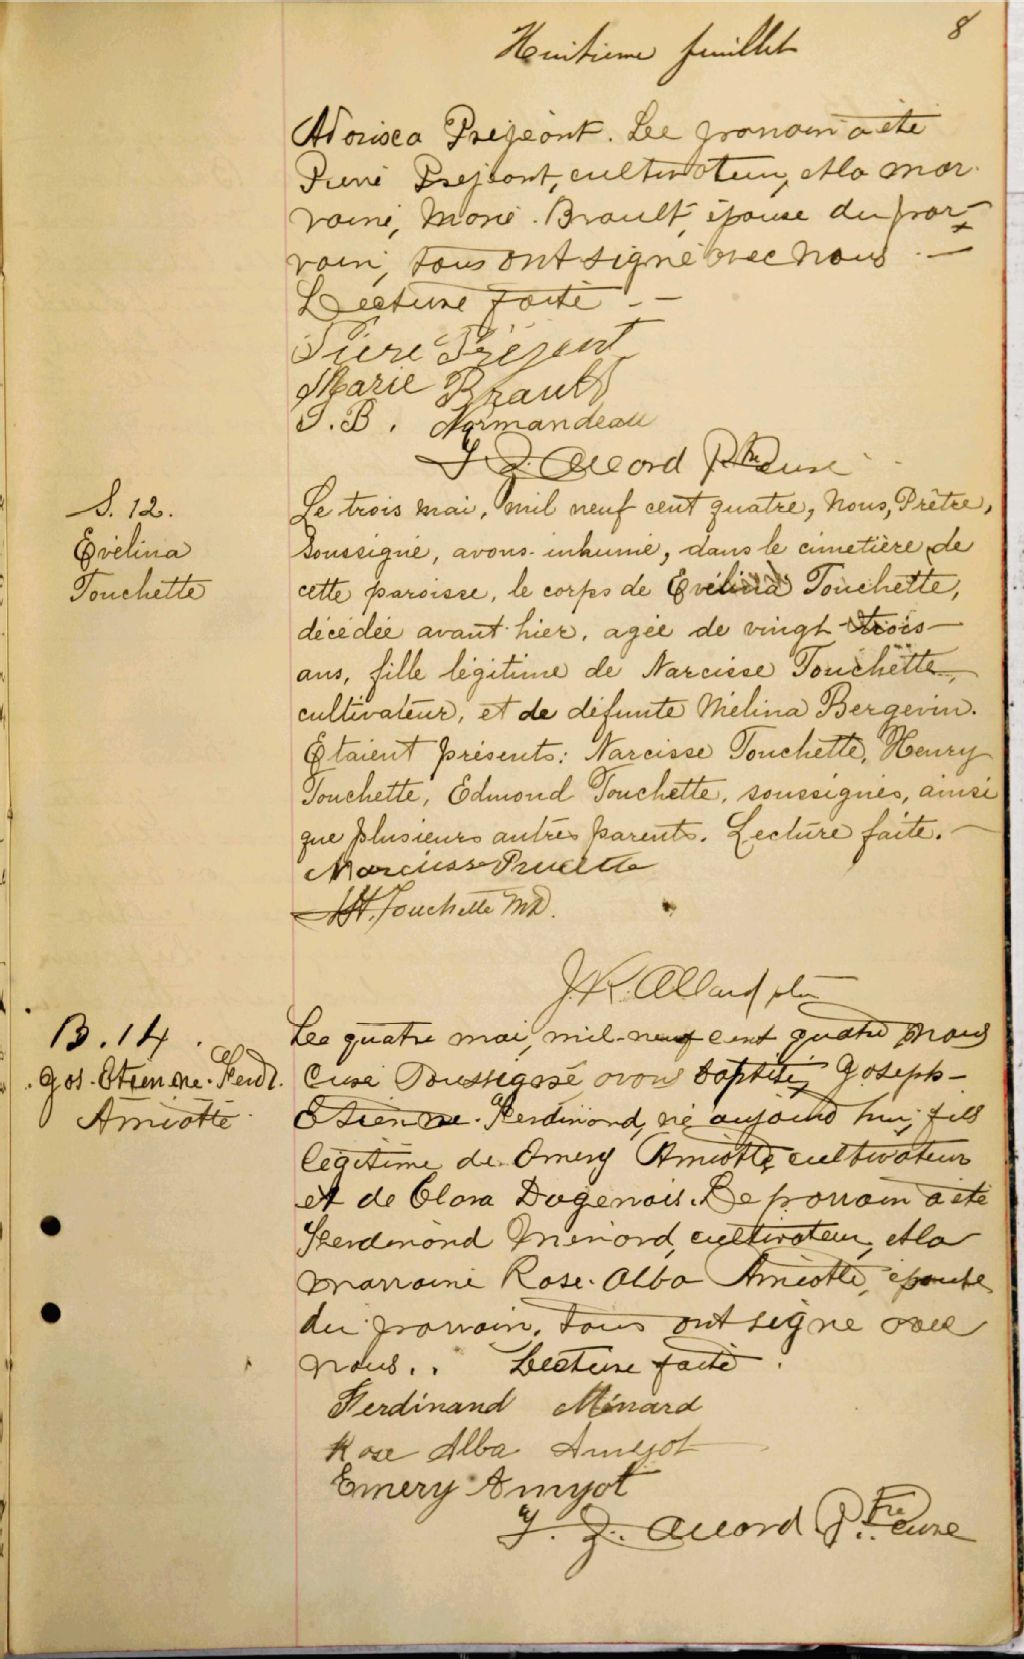 Huitieme feuillet
8
Adorisca Préjeant. Le parrain a été
Pierre Prejeant, cultivateur, et la mar-
raine, Marie Brault, épouse du par-
rain, tous ont signé avec nous. —
Lecture faite —
Piere Préjent
Marie Brault
J. B. Normandeau
J. Z. Allard Ptre Curé
S. 12.
Evélina
Touchette
Le trois mai, mil neuf cent quatre, Nous, Prêtre,
soussigné, avons inhumé, dans le cimetière de
cette paroisse, le corps de Evélina Touchette,
décédée avant hier, agée de vingt-trois
ans, fille légitime de Narcisse Touchette,
cultivateur, et de défunte Mélina Bergevin.
Etaient présents: Narcisse Touchette, Henry
Touchette, Edmond Touchette, soussignés, ainsi
que plusieurs autres parents. Lecture faite. —
Touchette MD.
Allard ptre
B. 14.
Jos. Etienne. Ferd.
Amiotte
Le quatre mai, mil-neuf cent quatre nous
Curé Soussigné avons baptisé, Joseph-
Etienne. Ferdinand, né aujourd hui, fils
légitime de Emery Amiotte, cultivateur
et de Clara Dagenais. Le parrain a été
Ferdinand Ménard, cultivateur, et la
marraine Rose-Alba Amiotte, épouse
du parrain, tous ont signé avec
nous.. Lecture faite.
Ferdinand Ménard
Rose Alba Amyot
Emery Amyot
J. Z. Allard Ptre curé